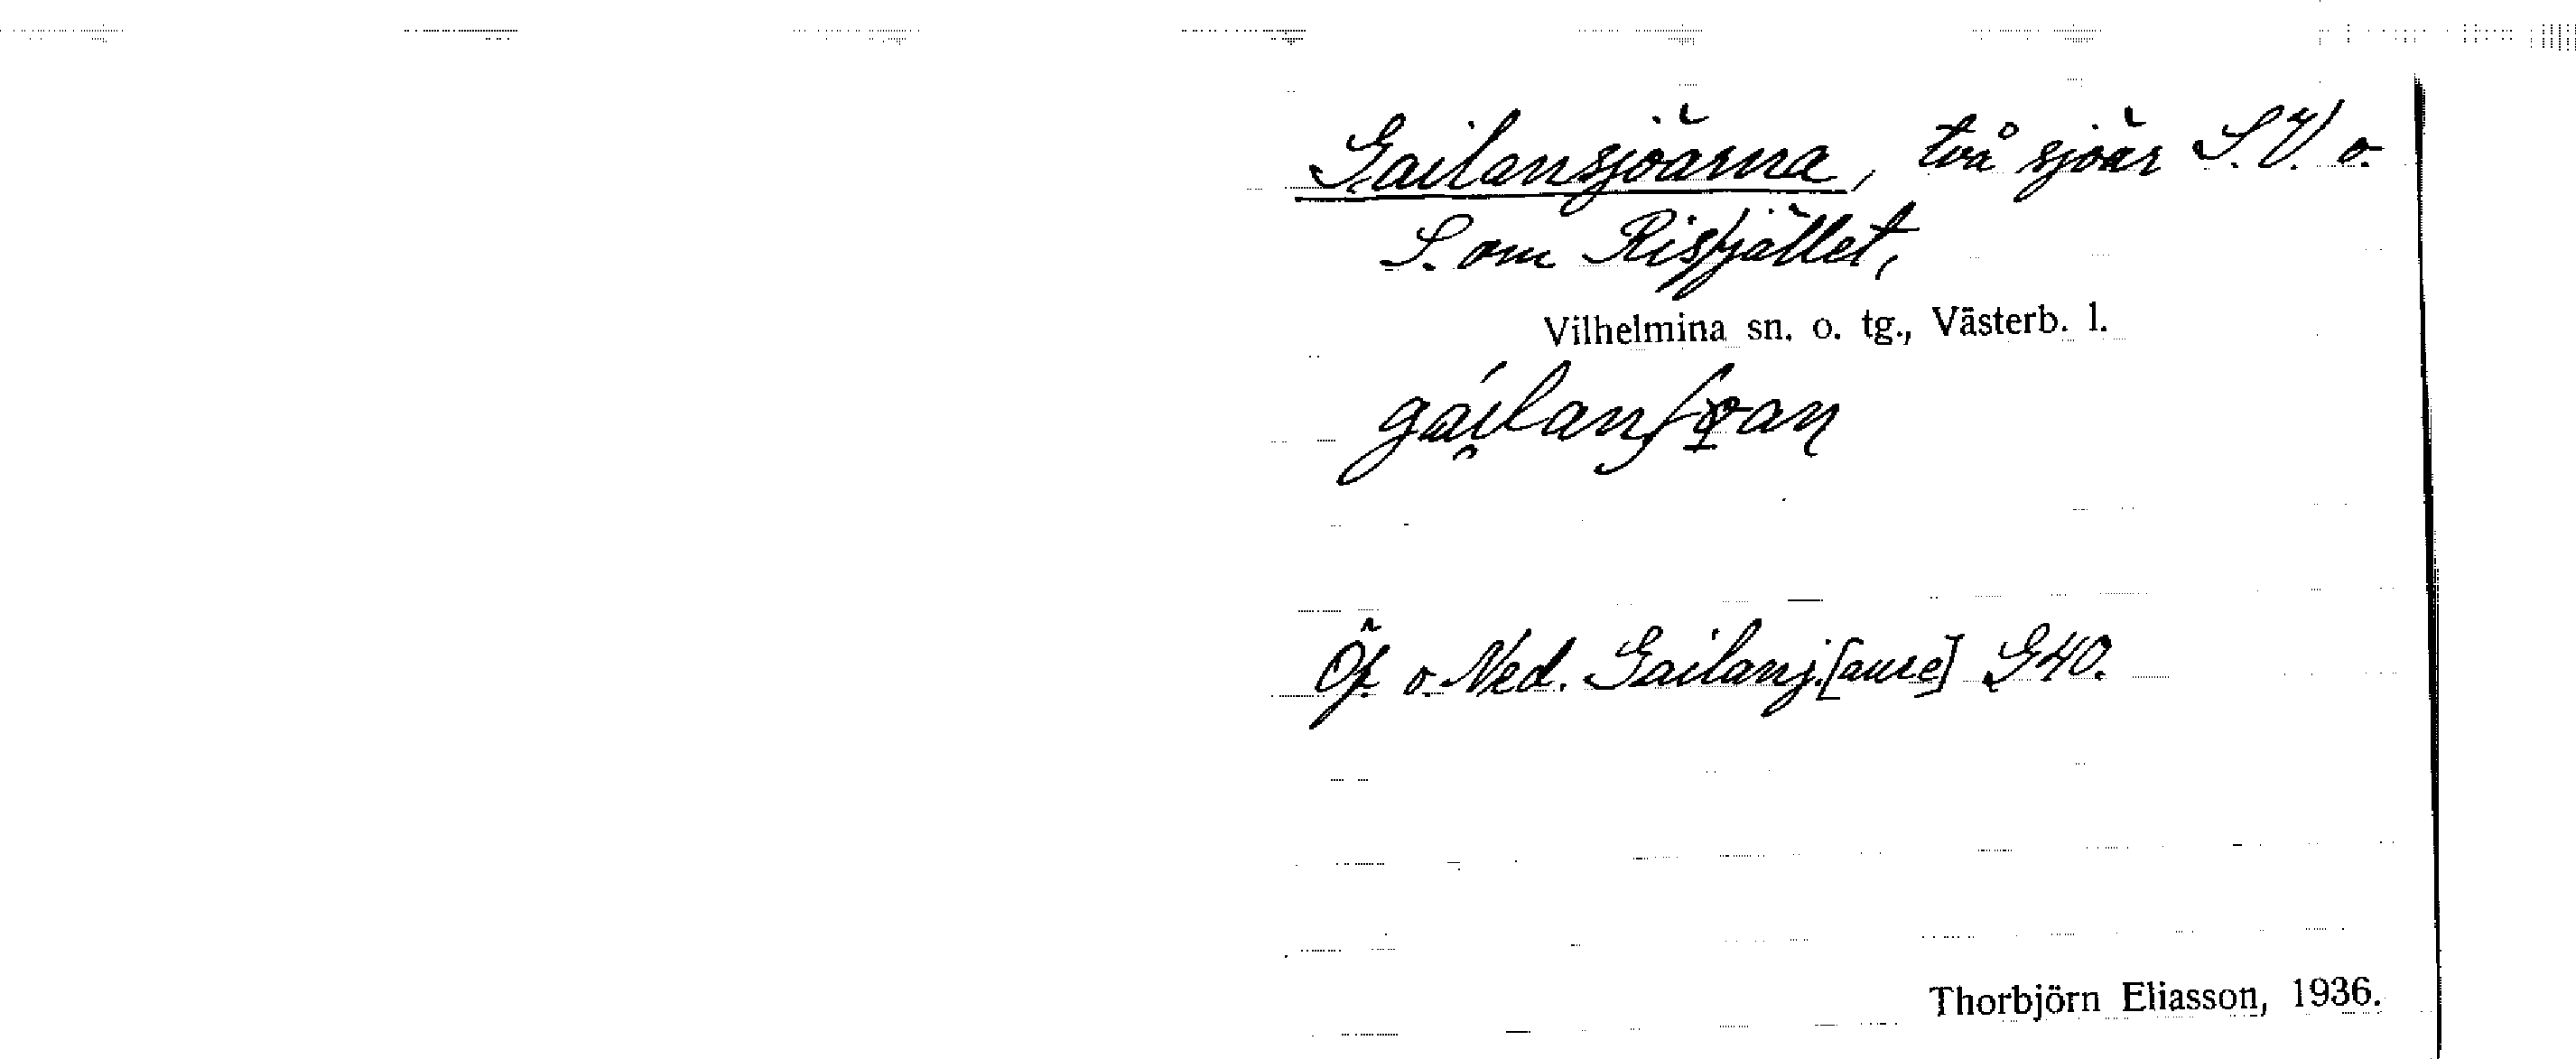 Gailansjöarna, två sjöar S.V. o.
S. om Risfjället,
Vilhelmina sn. o. tg., Västerb. l.
Öf. o. Ned. Gailanj.[aure] G40.
Thorbjörn Eliasson, 1936.